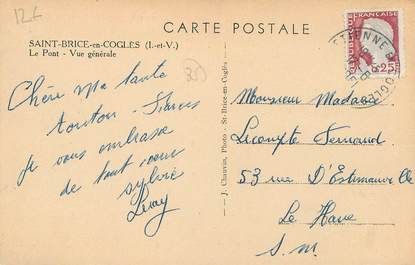 12€
CARTE POSTALE
SAINT-BRICE-en-COGLÈS (I.-et-V.)
Le Pont - Vue générale
Chère Ma tante
tonton
je vous embrasse
de tout cœur
sylvie
J. Chauvin, Photo - St-Brice-en-Coglès
FRANÇAISE
0,25
Monsieur Madame
Lecompte Fernand
53 rue D'Estimauville
Le Havre
S. M.